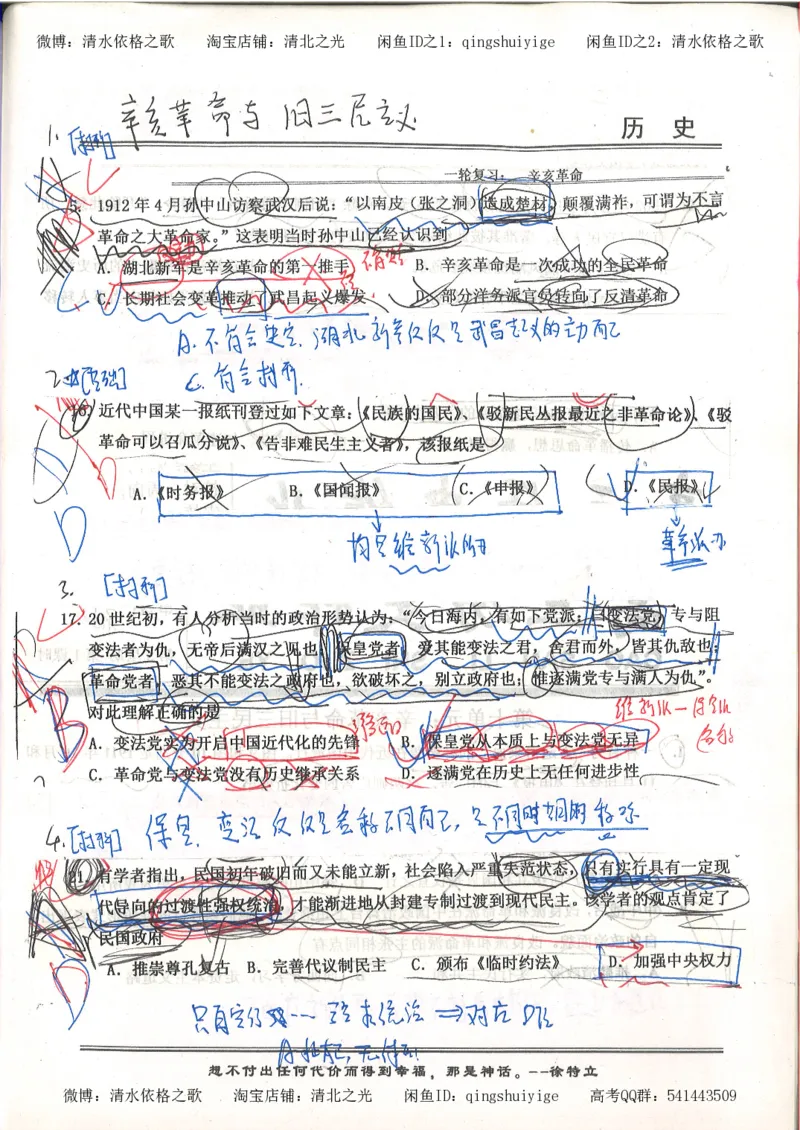 微博：清水依格之歌 淘宝店铺：清北之光 闲鱼ID之1：qingshuiyige 闲鱼ID之2：清水依格之歌
辛亥革命与旧三民主义
历 史
1. [押韵]
一轮复习： 辛亥革命
5. 1912 年 4 月孙中山访察武汉后说：“以南皮（张之洞）造成楚材，颠覆满祚，可谓为不言
革命之大革命家。”这表明当时孙中山已经认识到
A. 湖北新军是辛亥革命的第一推手 B. 辛亥革命是一次成功的全民革命
C. 长期社会变革推动了武昌起义爆发 D. 部分洋务派官员转向了反清革命
A. 不符合史实. 湖北新军仅仅是武昌起义的主力而已
C. 符合
16. 近代中国某一报纸刊登过如下文章：《民族的国民》、《驳新民丛报最近之非革命论》、《驳
革命可以召瓜分说》、《告非难民生主义者》，该报纸是
A.《时务报》 B.《国闻报》 C.《申报》 D.《民报》
D
均是维新派的
革命派办
3.
17. 20 世纪初，有人分析当时的政治形势认为：“今日海内，有如下党派：曰变法党，专与阻
变法者为仇，无帝后满汉之见也；保皇党者，爱其能变法之君，舍君而外，皆其仇敌也；
革命党者，恶其不能变法之政府也，欲破坏之，别立政府也；惟逐满党专与满人为仇”。
对此理解正确的是
A. 变法党实为开启中国近代化的先锋 B. 保皇党从本质上与变法党无异
C. 革命党与变法党没有历史继承关系 D. 逐满党在历史上无任何进步性
B
保皇, 变法仅仅是名称不同而已, 是不同时期的称呼
21. 有学者指出，民国初年破旧而又未能立新，社会陷入严重失范状态，只有实行具有一定现
代导向的过渡性强权统治，才能渐进地从封建专制过渡到现代民主。该学者的观点肯定了
民国政府
A. 推崇尊孔复古 B. 完善代议制民主 C. 颁布《临时约法》 D. 加强中央权力
D
想不付出任何代价而得到幸福，那是神话。--徐特立
微博：清水依格之歌 淘宝店铺：清北之光 闲鱼ID：qingshuiyige 高考QQ群：541443509